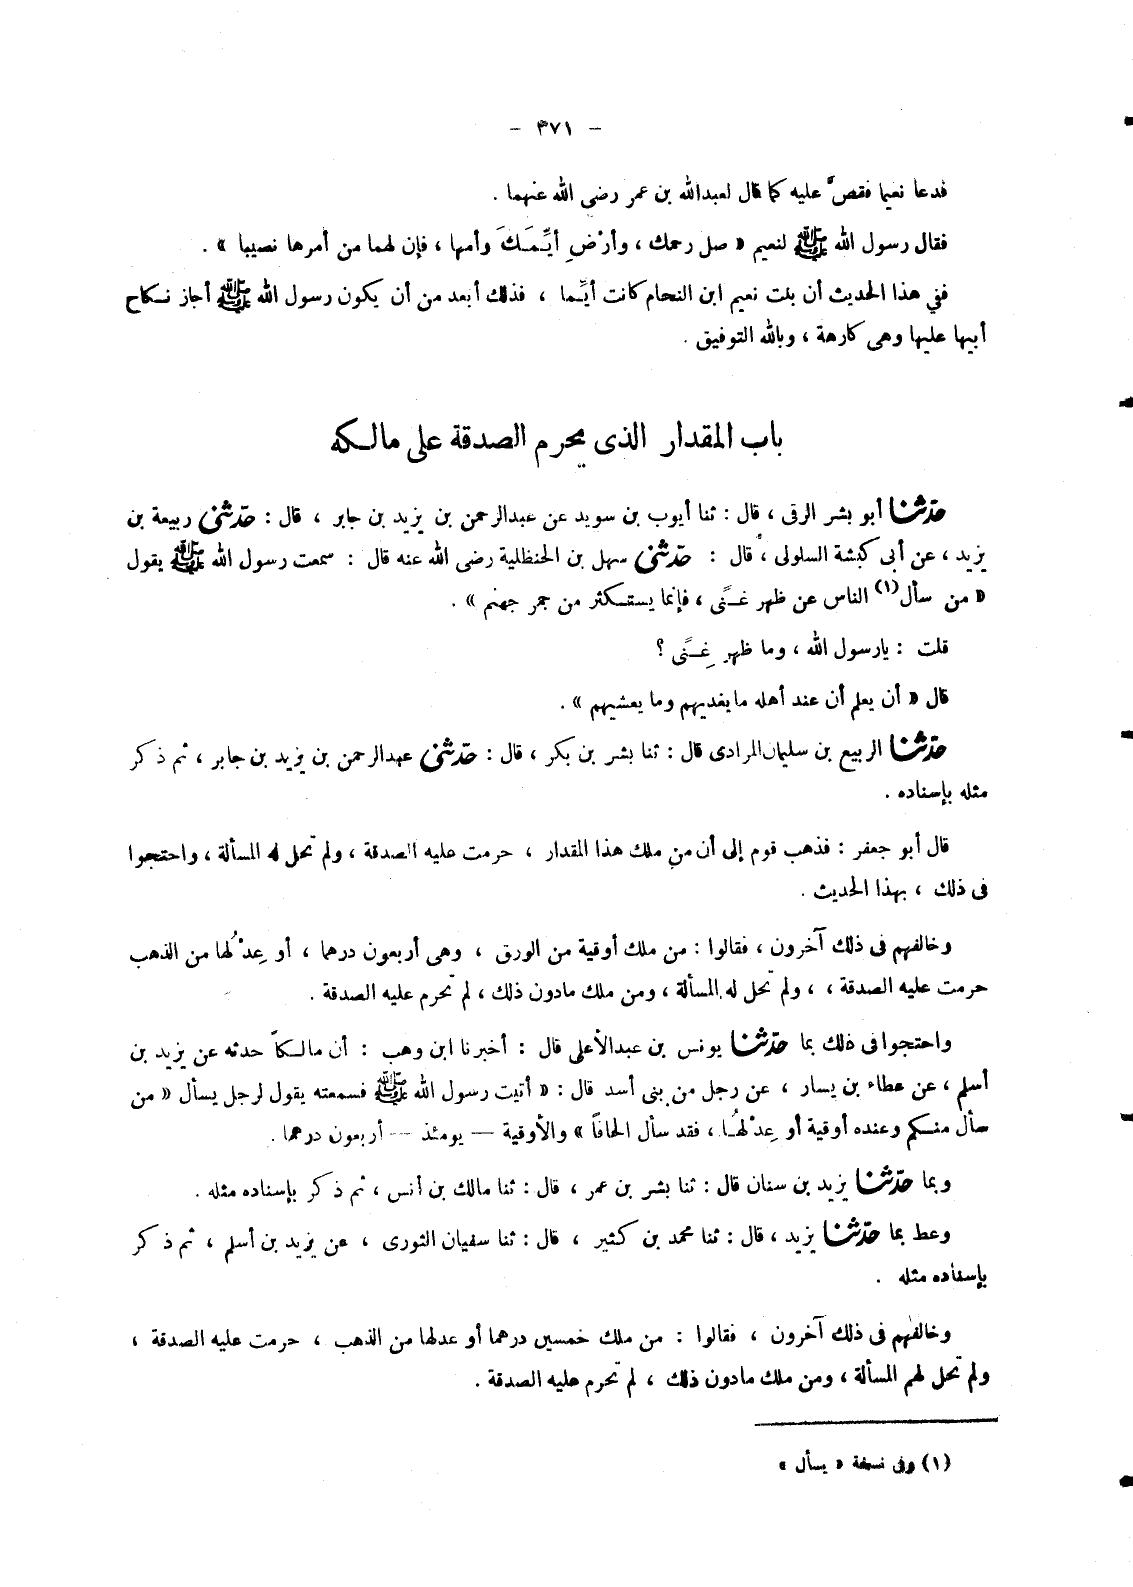 – ٣٧١ –
فدعا نعيما فقصَّ عليه كما قال لعبدالله بن عمر رضى الله عنهما .
فقال رسول الله ﷺ لنعيم « صل رحمك ، وأرْضِ أيِّمَكَ وأمها ، فإن لهما من أمرها نصيبا » .
ففى هذا الحديث أن بنت نعيم ابن النحام كانت أيِّما ، فذلك أبعد من أن يكون رسول الله ﷺ أجاز نكاح
أبيها عليها وهى كارهة ، وبالله التوفيق .
باب المقدار الذى يحرم الصدقة على مالكه
حدّثنا أبو بشر الرقى ، قال : ثنا أيوب بن سويد عن عبدالرحمن بن يزيد بن جابر ، قال : حدّثنى ربيعة بن
يزيد ، عن أبى كبشة السلولى ، قال : حدّثنى سهل بن الحنظلية رضى الله عنه قال : سمعت رسول الله ﷺ يقول
« من سأل(١) الناس عن ظهر غنًى ، فإنما يستكثر من جمر جهنم » .
قلت : يارسول الله ، وما ظهر غِنًى ؟
قال « أن يعلم أن عند أهله مايغديهم وما يعشيهم » .
حدّثنا الربيع بن سليمان المرادى قال : ثنا بشر بن بكر ، قال : حدّثنى عبدالرحمن بن يزيد بن جابر ، ثم ذكر
مثله بإسناده .
قال أبو جعفر : فذهب قوم إلى أن من ملك هذا المقدار ، حرمت عليه الصدقة ، ولم تحل له المسألة ، واحتجوا
فى ذلك ، بهذا الحديث .
وخالفهم فى ذلك آخرون ، فقالوا : من ملك أوقية من الورق ، وهى أربعون درهما ، أو عِدْلُها من الذهب
حرمت عليه الصدقة ، ، ولم تحل له المسألة ، ومن ملك مادون ذلك ، لم تحرم عليه الصدقة .
واحتجوا فى ذلك بما حدّثنا يونس بن عبدالأعلى قال : أخبرنا ابن وهب : أن مالكاً حدثه عن يزيد بن
أسلم ، عن عطاء بن يسار ، عن رجل من بنى أسد قال : « أتيت رسول الله ﷺ فسمعته يقول لرجل يسأل « من
سأل منكم وعنده أوقية أو عِدْلهُا ، فقد سأل الحافاً » والأوقية — يومئذ — أربعون درهما .
وبما حدّثنا يزيد بن سنان قال : ثنا بشر بن عمر ، قال : ثنا مالك بن أنس ، ثم ذكر بإسناده مثله .
وعط بما حدّثنا يزيد ، قال : ثنا محمد بن كثير ، قال : ثنا سفيان الثورى ، عن يزيد بن أسلم ، ثم ذكر
بإسناده مثله .
وخالفهم فى ذلك آخرون ، فقالوا : من ملك خمسين درهما أو عدلها من الذهب ، حرمت عليه الصدقة ،
ولم تحل لهم المسألة ، ومن ملك مادون ذلك ، لم تحرم عليه الصدقة .
(١) وفى نسخة « يسأل »